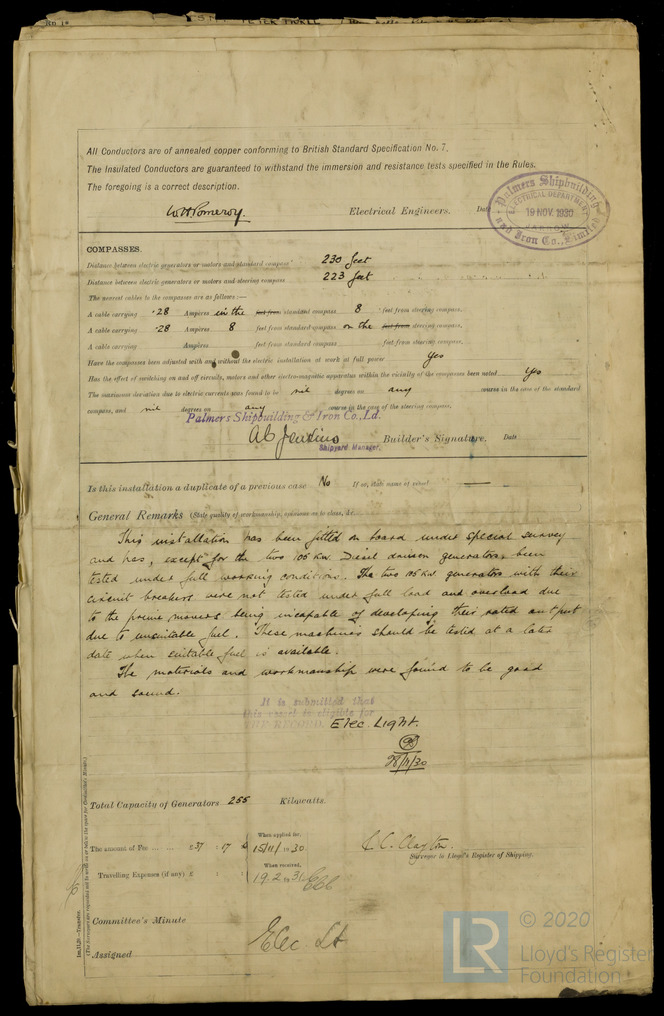 All Conductors are of annealed copper conforming to British Standard Specification No. 7.
The Insulated Conductors are guaranteed to withstand the immersion and resistance tests specified in the Rules.
The foregoing is a correct description.
W H Pomeroy. Electrical Engineers. Date
Palmers Shipbuilding
ELECTRICAL DEPARTMENT
19 NOV. 1930
and Iron Co., Limited
COMPASSES.
Distance between electric generators or motors and standard compass 230 feet
Distance between electric generators or motors and steering compass 223 feet
The nearest cables to the compasses are as follows:—
A cable carrying .28 Ampères in the feet from standard compass 8 feet from steering compass.
A cable carrying .28 Ampères 8 feet from standard compass on the feet from steering compass.
A cable carrying Ampères feet from standard compass feet from steering compass.
Have the compasses been adjusted with and without the electric installation at work at full power Yes
Has the effect of switching on and off circuits, motors and other electro-magnetic apparatus within the vicinity of the compasses been noted Yes
The maximum deviation due to electric currents was found to be nil degrees on any course in the case of the standard
compass, and nil degrees on any course in the case of the steering compass.
Palmers Shipbuilding & Iron Co., Ld.
Builder's Signature. Date
Shipyard Manager.
Is this installation a duplicate of a previous case No If so, state name of vessel —
General Remarks (State quality of workmanship, opinions as to class, &c.
This installation has been fitted on board under special survey
and has, except for the two 105 Kw. Diesel driven generators, been
tested under full working conditions. The two 105 Kw generators with their
circuit breakers were not tested under full load and overload due
to the prime movers being incapable of developing their rated output
due to unsuitable fuel. These machines should be tested at a later
date when suitable fuel is available.
The materials and workmanship were found to be good
and sound.
It is submitted that
this vessel is eligible for
THE RECORD Elec. Light.
28/11/30
Total Capacity of Generators 255 Kilowatts.
The amount of Fee ... ... £37 : 17 : 6 When applied for, 15/11/1930
Travelling Expenses (if any) £ : : When received, 19.2.1931
C. C. Clayton.
Surveyor to Lloyd's Register of Shipping.
Committee's Minute
Assigned Elec Lt
LR © 2020
Lloyd's Register
Foundation